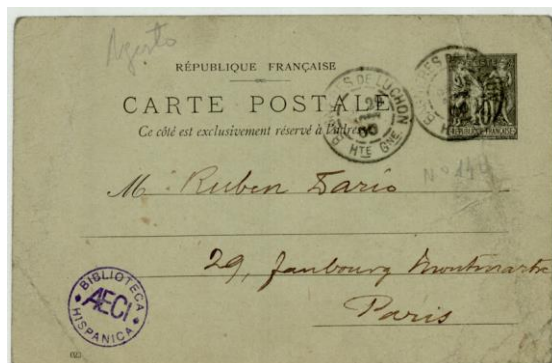 Agosto
RÉPUBLIQUE FRANÇAISE
CARTE POSTALE
Ce côté est exclusivement réservé à l'adresse
DE LUCHON
HTE GNE
10
RÉPUBLIQUE FRANÇAISE
Nº 144
M. Ruben Dario
29, faubourg Montmartre
Paris
BIBLIOTECA
AECI
HISPANICA